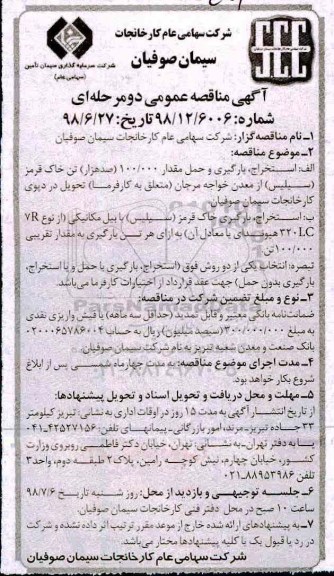 شرکت سهامی عام کارخانجات
سیمان صوفیان
شرکت سرمایه گذاری سیمان تأمین
(سهامی عام)
SCC
آگهی مناقصه عمومی دومرحله‌ای
شماره: ۹۸/۱۲/۶۰۰۶ تاریخ: ۹۸/۶/۲۷
۱ـ نام مناقصه گزار: شرکت سهامی عام کارخانجات سیمان صوفیان
۲ـ موضوع مناقصه:
الف: استخراج، بارگیری و حمل مقدار ۱۰۰/۰۰۰ (صدهزار) تن خاک قرمز
(سیلیس) از معدن خواجه مرجان (متعلق به کارفرما) تحویل در دپوی
کارخانجات سیمان صوفیان.
ب: استخراج، بارگیری خاک قرمز (سیلیس) با بیل مکانیکی (از نوع ۷R
۳۲۰LC هیوندای یا معادل آن) به ازای هر تن بارگیری به مقدار تقریبی
۱۰۰/۰۰۰ تن
تبصره: انتخاب یکی از دو روش فوق (استخراج، بارگیری با حمل و یا استخراج،
بارگیری بدون حمل) جهت عقد قرارداد از اختیارات کارفرما می‌باشد.
۳ـ نوع و مبلغ تضمین شرکت در مناقصه:
ضمانت‌نامه بانکی معتبر و قابل تمدید (حداقل سه ماهه) یا فیش واریزی نقدی
به مبلغ ۳۰۰/۰۰۰/۰۰۰ (سیصد میلیون) ریال به حساب ۰۲۰۰۰۶۵۷۸۶۰۰۴
بانک صنعت و معدن شعبه تبریز به نام شرکت سیمان صوفیان.
۴ـ مدت اجرای موضوع مناقصه: به مدت چهارماه شمسی پس از ابلاغ
شروع بکار خواهد بود.
۵ـ مهلت و محل دریافت و تحویل اسناد و تحویل پیشنهادها:
از تاریخ انتشار آگهی به مدت ۱۵ روز در اوقات اداری به نشانی: تبریز کیلومتر
۳۳ جاده تبریز ـ مرند، امور بازرگانی ـ پیمانهای تلفن: ۴۲۵۲۷۱۵۶ـ۰۴۱
یا به دفتر تهران ـ به نشانی: تهران، خیابان دکتر فاطمی روبروی وزارت
کشور، خیابان چهارم، نبش کوچه رامین، پلاک ۲ طبقه دوم، واحد ۳
تلفن: ۸۸۹۵۳۹۸۶ـ۰۲۱
۶ـ جلسه توجیهی و بازدید از محل: روز شنبه تاریخ ۹۸/۷/۶
ساعت ۱۰ صبح در محل دفتر فنی کارخانجات سیمان صوفیان.
۷ـ به پیشنهادهای ارائه شده خارج از موعد مقرر ترتیب اثر داده نشده و شرکت
در رد یا قبول یک یا کلیه پیشنهادها مختار می‌باشد.
شرکت سهامی عام کارخانجات سیمان صوفیان